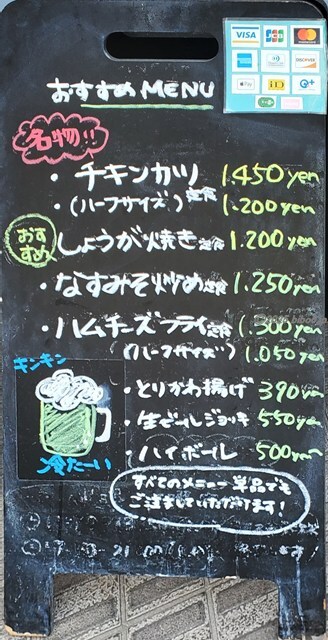 VISA JCB MasterCard
DISCOVER
Pay iD
おすすめ MENU
名物!!
・チキンカツ定食 1.450 yen
・(ハーフサイズ) 1.200 yen
おすすめ
しょうが焼き定食 1.200 yen
・なすみそ炒め定食 1.250 yen
・ハムチーズフライ定食 1.300 yen
(ハーフサイズ) 1.050 yen
キンキン
冷たーい
・とりかわ揚げ 390 yen
・生ビールジョッキ 550 yen
・ハイボール 500 yen
すべてのメニュー単品でも
ご注文していただけます!